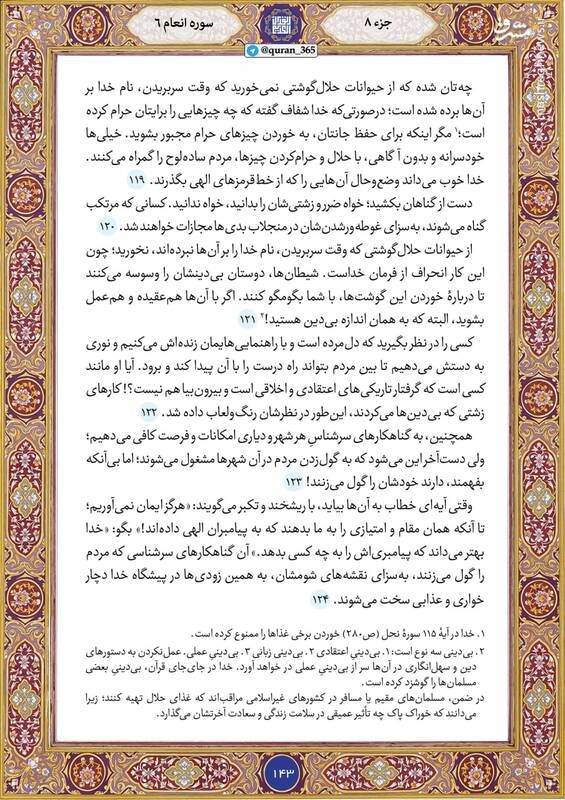 جزء ۸
سوره انعام ۶
@quran_365
مشرق
چه‌تان شده که از حیوانات حلال‌گوشتی نمی‌خورید که وقت سربریدن، نام خدا بر
آن‌ها برده شده است؛ درصورتی‌که خدا شفاف گفته که چه چیزهایی را برایتان حرام کرده
است؛۱ مگر اینکه برای حفظ جانتان، به خوردن چیزهای حرام مجبور بشوید. خیلی‌ها
خودسرانه و بدون آگاهی، با حلال و حرام‌کردن چیزها، مردم ساده‌لوح را گمراه می‌کنند.
خدا خوب می‌داند وضع‌وحال آن‌هایی را که از خط‌قرمزهای الهی بگذرند. ۱۱۹
دست از گناهان بکشید؛ خواه ضرر و زشتی‌شان را بدانید، خواه ندانید. کسانی که مرتکب
گناه می‌شوند، به‌سزای غوطه‌ورشدن‌شان در منجلاب بدی‌ها مجازات خواهند شد. ۱۲۰
از حیوانات حلال‌گوشتی که وقت سربریدن، نام خدا را بر آن‌ها نبرده‌اند، نخورید؛ چون
این کار انحراف از فرمان خداست. شیطان‌ها، دوستان بی‌دینشان را وسوسه می‌کنند
تا دربارهٔ خوردن این گوشت‌ها، با شما بگومگو کنند. اگر با آن‌ها هم‌عقیده و هم‌عمل
بشوید، البته که به همان اندازه بی‌دین هستید!۲ ۱۲۱
کسی را در نظر بگیرید که دل‌مرده است و با راهنمایی‌هایمان زنده‌اش می‌کنیم و نوری
به دستش می‌دهیم تا بین مردم بتواند راه درست را با آن پیدا کند و برود. آیا او مانند
کسی است که گرفتار تاریکی‌های اعتقادی و اخلاقی است و بیرون‌بیا هم نیست؟! کارهای
زشتی که بی‌دین‌ها می‌کردند، این‌طور در نظرشان رنگ‌ولعاب داده شد. ۱۲۲
همچنین، به گناهکارهای سرشناسِ هر شهر و دیاری امکانات و فرصت کافی می‌دهیم؛
ولی دست‌آخر این می‌شود که به گول‌زدن مردم در آن شهرها مشغول می‌شوند؛ اما بی‌آنکه
بفهمند، دارند خودشان را گول می‌زنند! ۱۲۳
وقتی آیه‌ای خطاب به آن‌ها بیاید، با ریشخند و تکبر می‌گویند: «هرگز ایمان نمی‌آوریم؛
تا آنکه همان مقام و امتیازی را به ما بدهند که به پیامبران الهی داده‌اند!» بگو: «خدا
بهتر می‌داند که پیامبری‌اش را به چه کسی بدهد.» آن گناهکارهای سرشناسی که مردم
را گول می‌زنند، به‌سزای نقشه‌های شومشان، به همین زودی‌ها در پیشگاه خدا دچار
خواری و عذابی سخت می‌شوند. ۱۲۴
۱. خدا در آیهٔ ۱۱۵ سورهٔ نحل (ص۲۸۰) خوردن برخی غذاها را ممنوع کرده است.
۲. بی‌دینی سه نوع است: ۱. بی‌دینی اعتقادی ۲. بی‌دینی زبانی ۳. بی‌دینی عملی. عمل‌نکردن به دستورهای
دین و سهل‌انگاری در آن‌ها سر از بی‌دینیِ عملی در خواهد آورد. خدا در جای‌جای قرآن، بی‌دینیِ بعضی
مسلمان‌ها را گوشزد کرده است.
در ضمن، مسلمان‌های مقیم یا مسافر در کشورهای غیراسلامی مراقب‌اند که غذای حلال تهیه کنند؛ زیرا
می‌دانند که خوراک پاک چه تأثیر عمیقی در سلامت زندگی و سعادت آخرتشان می‌گذارد.
۱۴۳